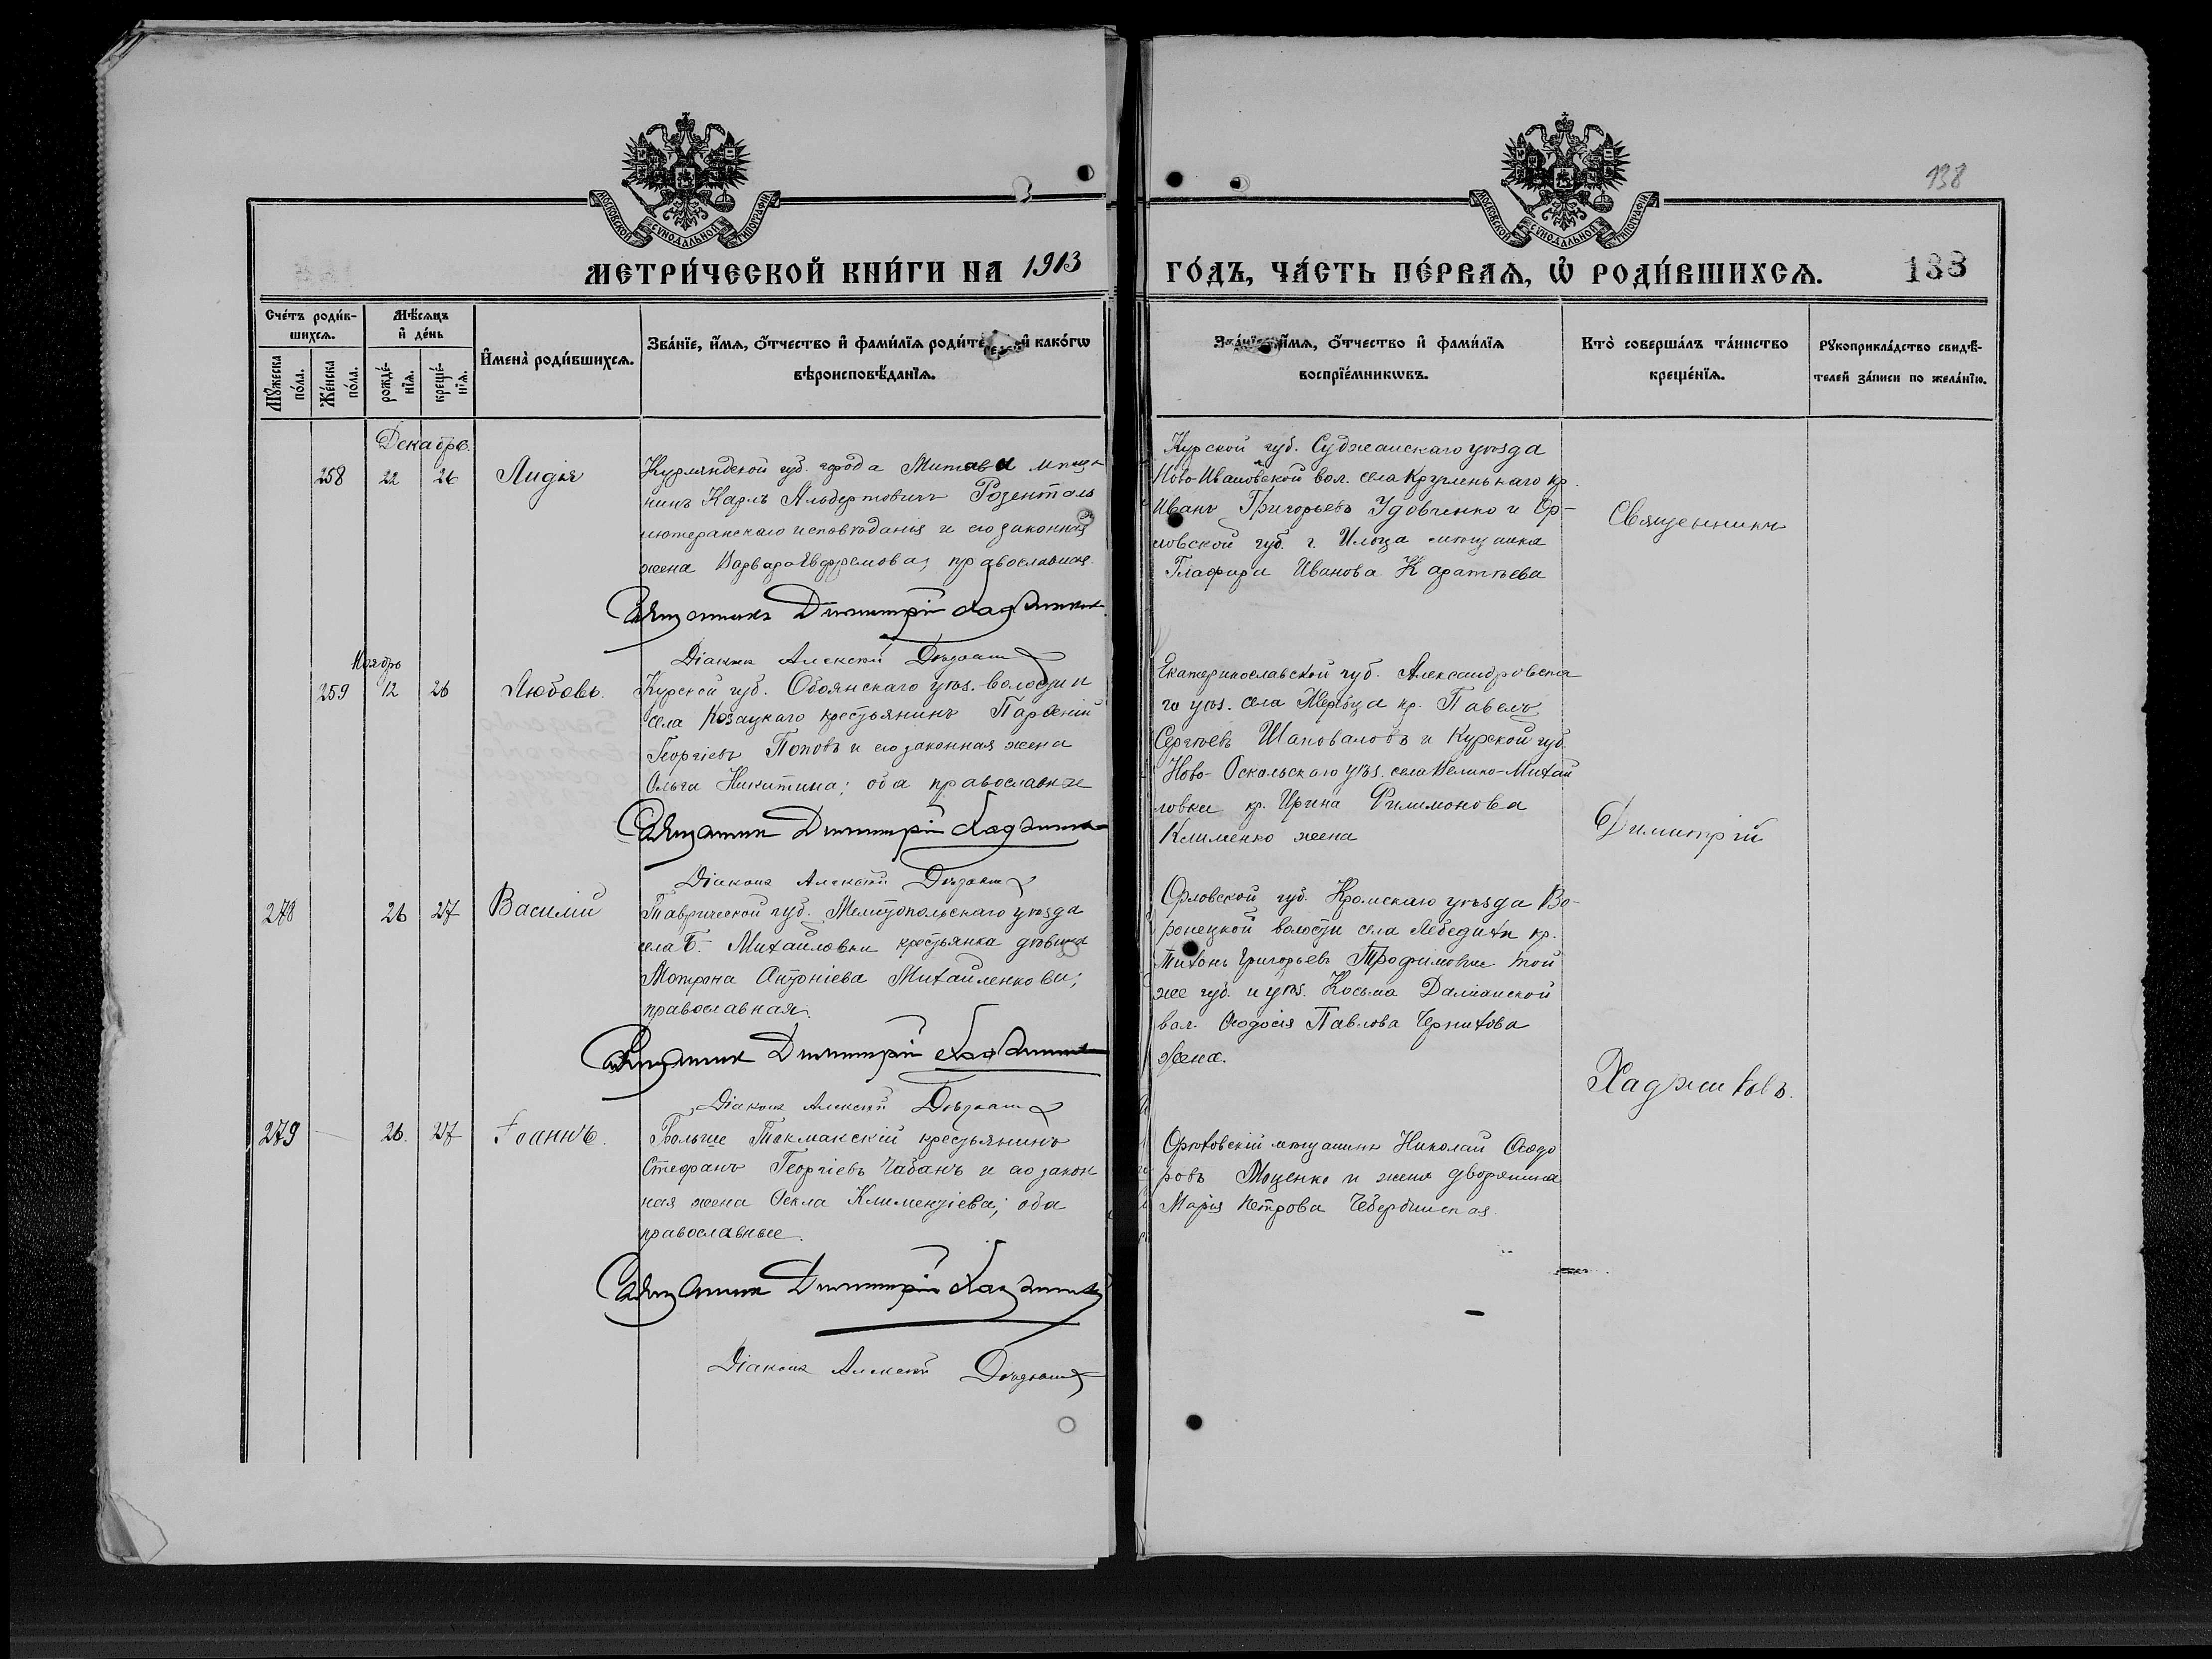 138
МОСКОВСКОЙ СѴНОДАЛЬНОЙ ТИПОГРАФІИ
МОСКОВСКОЙ СѴНОДАЛЬНОЙ ТИПОГРАФІИ
МЕТРИ́ЧЕСКОЙ КНИ́ГИ НА 1913
ГО́ДЪ, ЧА́СТЬ ПЕ́РВАЯ, Ѡ РОДИ́ВШИХСЯ.
138
Сче́тъ роди́в-
шихся.
Мꙋ́жеска по́ла.
Же́нска по́ла.
Мѣ́сяцъ
и҆ де́нь
рожде́-
нїя.
креще́-
нїя.
И҆мена̀ роди́вшихся.
Зва́нїе, и҆́мя, ѻ҆́тчество и҆ фами́лїя роди́телей и҆ како́гѡ
вѣроисповѣ́данїя.
Зва́нїе, и҆́мя, ѻ҆́тчество и҆ фами́лїя
воспрїе́мникѡвъ.
Кто̀ соверша́лъ та́инство
креще́нїя.
Рꙋкоприкла́дство свидѣ́-
телей за́писи по жела́нїю.
Декабрь.
258 22 26 Лидія
Курляндской губ. города Митавы мѣща
нинъ Карлъ Альбертовичъ Розенталь
лютеранскаго исповѣданія и его законная
жена Варвара Евфремова, православная.
Священникъ Димитрій Хаджиновъ
Діаконъ Алексѣй
Курской губ. Суджанскаго уѣзда
Ново-Ивановской вол. села Кругленькаго кр.
Иванъ Григорьевъ Удовченко и Ор-
ловской губ. г. Ельца мѣщанка
Глафира Иванова Каратѣева
Священникъ
Ноябрь
259 12 26 Любовь.
Курской губ. Обоянскаго уѣз. волости
села Козацкаго крестьянинъ Парѳеній
Георгіевъ Поповъ и его законная жена
Ольга Никитина; оба православные
Священникъ Димитрій Хаджиновъ
Діаконъ Алексѣй
Екатеринославской губ. Александровска
го уѣз. села Жеребца кр. Павелъ
Сергѣевъ Шаповаловъ и Курской губ.
Ново-Оскольскаго уѣз. села Велико-Михай
ловки кр. Ирина Филимонова
Клименко жена
Димитрій
278 26 27 Василій
Таврической губ. Мелитопольскаго уѣзда
села Б-Михайловки крестьянка дѣвица
Мотрона Антоніева Михайленкова;
православная.
Священникъ Димитрій Хаджиновъ
Діаконъ Алексѣй
Орловской губ. Кромскаго уѣзда Во-
ронецкой волости села Лебедихи кр.
Тихонъ Григорьевъ Трофимовъ и той
же губ. и уѣз. Косьма Даміанской
вол. Ѳеодосія Павлова Чернихова
жена.
Хаджиновъ.
279 26. 27 Іоаннъ.
Больше Токмакскій крестьянинъ
Стефанъ Георгіевъ Чабанъ и его закон
ная жена Ѳекла Климентіева; оба
православные.
Священникъ Димитрій Хаджиновъ
Діаконъ Алексѣй
Орѣховскій мѣщанинъ Николай Ѳеодо
ровъ Моценко и жена дворянина
Марія Петрова